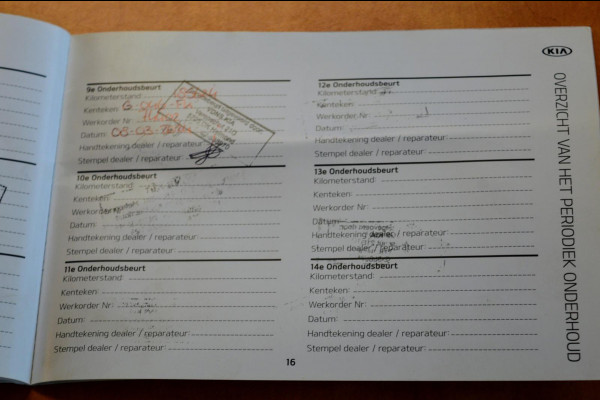 KIA
OVERZICHT VAN HET PERIODIEK ONDERHOUD
9e Onderhoudsbeurt
Kilometerstand:
Kenteken:
Werkorder Nr:
Datum:
Handtekening dealer / reparateur:
Stempel dealer / reparateur:
10e Onderhoudsbeurt
Kilometerstand:
Kenteken:
Werkorder
Datum:
Handtekening dealer / reparateur:
Stempel dealer / reparateur:
11e Onderhoudsbeurt
Kilometerstand:
Kenteken:
Werkorder Nr:
Datum:
Handtekening dealer / reparateur:
Stempel dealer / reparateur:
12e Onderhoudsbeurt
Kilometerstand:
Kenteken:
Werkorder Nr:
Datum:
Handtekening dealer / reparateur:
Stempel dealer / reparateur:
13e Onderhoudsbeurt
Kilometerstand:
Kenteken:
Werkorder Nr:
Datum:
Handtekening dealer / reparateur:
Stempel dealer / reparateur:
14e Onderhoudsbeurt
Kilometerstand:
Kenteken:
Werkorder Nr:
Datum:
Handtekening dealer / reparateur:
Stempel dealer / reparateur:
16